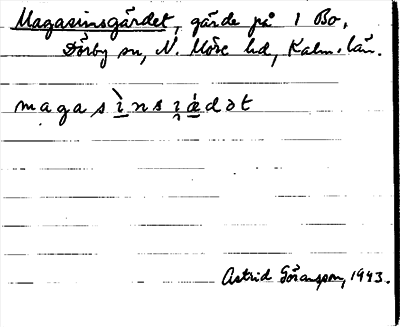 Magasinsgärdet, gärde på 1 Bo,
Dörby sn, N. Möre hd, Kalm. län.
Astrid Göransson, 1943.